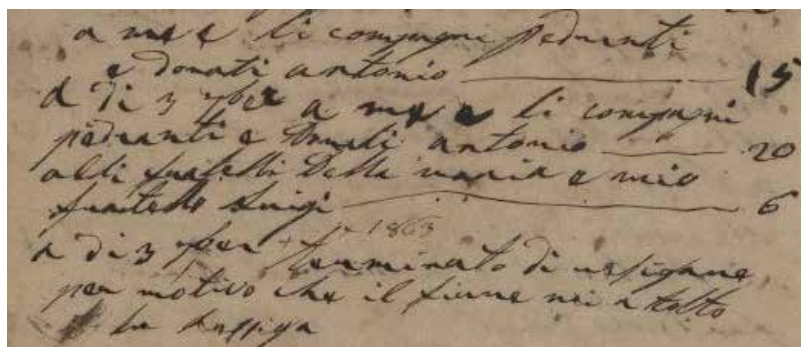 a me e li compagni pedranti
e donati antonio — 15
a di 3 7bre a me e li compagni
pedranti e Donati antonio — 20
alli fratelli Della maria e mio
fratello Luigi — 6
1863
a di 3 7bre terminato di
per motivo che il fiume mi a tolto
la